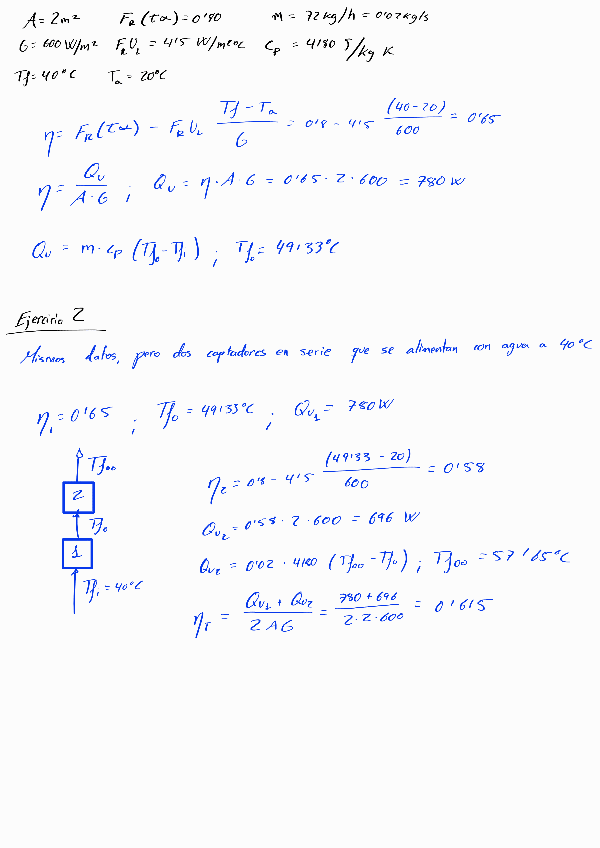 A = 2m² F_R(τα) = 0'80 m = 72 kg/h = 0'02 kg/s
G = 600 W/m² F_R U_L = 4'5 W/m²ºC C_p = 4180 J/kg K
Tf = 40ºC T_a = 20ºC
η = F_R(τα) - F_R U_L (Tf - T_a)/G = 0'8 - 4'5 (40-20)/600 = 0'65
η = Q_U/(A·G) ; Q_U = η·A·G = 0'65·2·600 = 780 W
Q_U = m·c_p (Tf_o - Tf_i) ; Tf_o = 49'33ºC
Ejercicio 2
Mismos datos, pero dos captadores en serie que se alimentan con agua a 40ºC
η_1 = 0'65 ; Tf_o = 49'33ºC ; Q_U1 = 780 W
Tf_oo
2
Tf_o
1
Tf_i = 40ºC
η_2 = 0'8 - 4'5 (49'33 - 20)/600 = 0'58
Q_U2 = 0'58 · 2 · 600 = 696 W
Q_U2 = 0'02 · 4180 (Tf_oo - Tf_o) ; Tf_oo = 57'65ºC
η_T = (Q_U1 + Q_U2)/(2AG) = (780 + 696)/(2·2·600) = 0'615